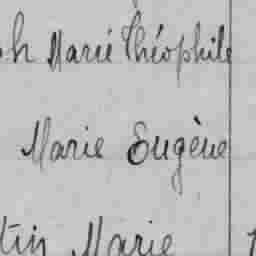 h Marie Théophile
Marie Eugène
tin Marie